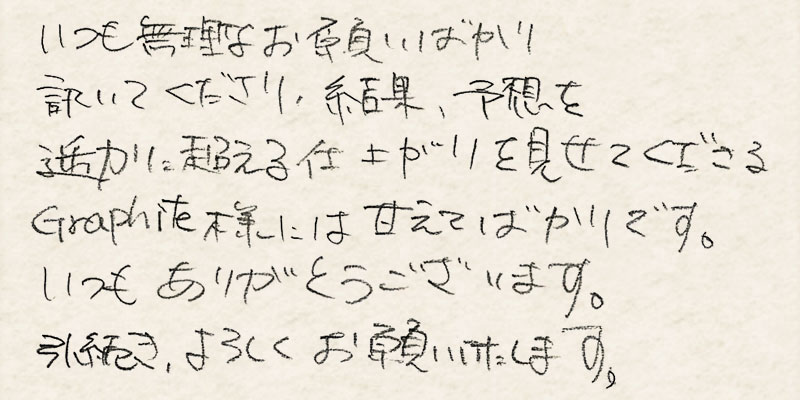 いつも無理なお願いばかり
訊いてくださり、結果、予想を
遥かに超える仕上がりを見せてくださる
Graphite様には甘えてばかりです。
いつもありがとうございます。
引続き、よろしくお願いいたします。